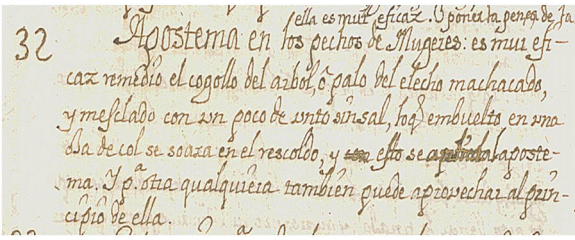 ella es muy eficaz. O poner la penca de la
32 Apostema en los pechos de Mugeres: es mui efi-
caz remedio el cogollo del arbol, ô palo del elecho machacado,
y mesclado con un poco de unto sin sal, loq̃ embuelto en una
oja de col se soaza en el rescoldo, y esto se aplica a la aposte-
ma. Y pª otra qualquiera tambien puede aprovechar al prin-
cipio de ella.